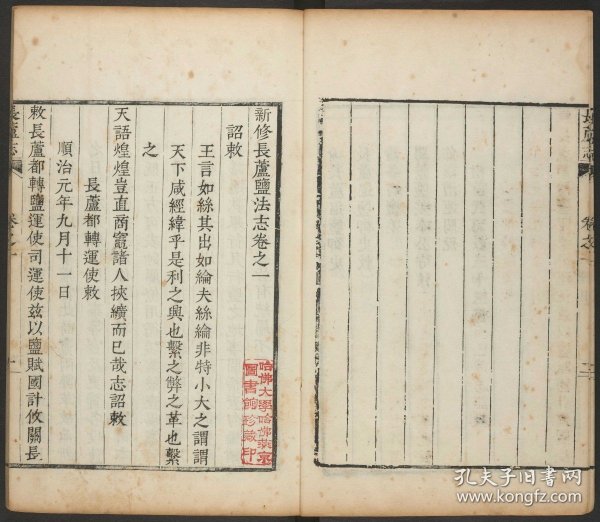 新修長蘆鹽法志卷之一
詔敕
王言如絲其出如綸夫絲綸非特小大之謂謂
天下咸經緯乎是利之興也繫之弊之革也繫
之
天語煌煌豈直商竈諸人挾纊而已哉志詔敕
長蘆都轉運使敕
順治元年九月十一日
敕長蘆都轉鹽運使司運使茲以鹽賦國計攸關長
長蘆志
卷之一
哈佛大學哈佛燕京
圖書館珍藏印
孔夫子旧书网
www.kongfz.com